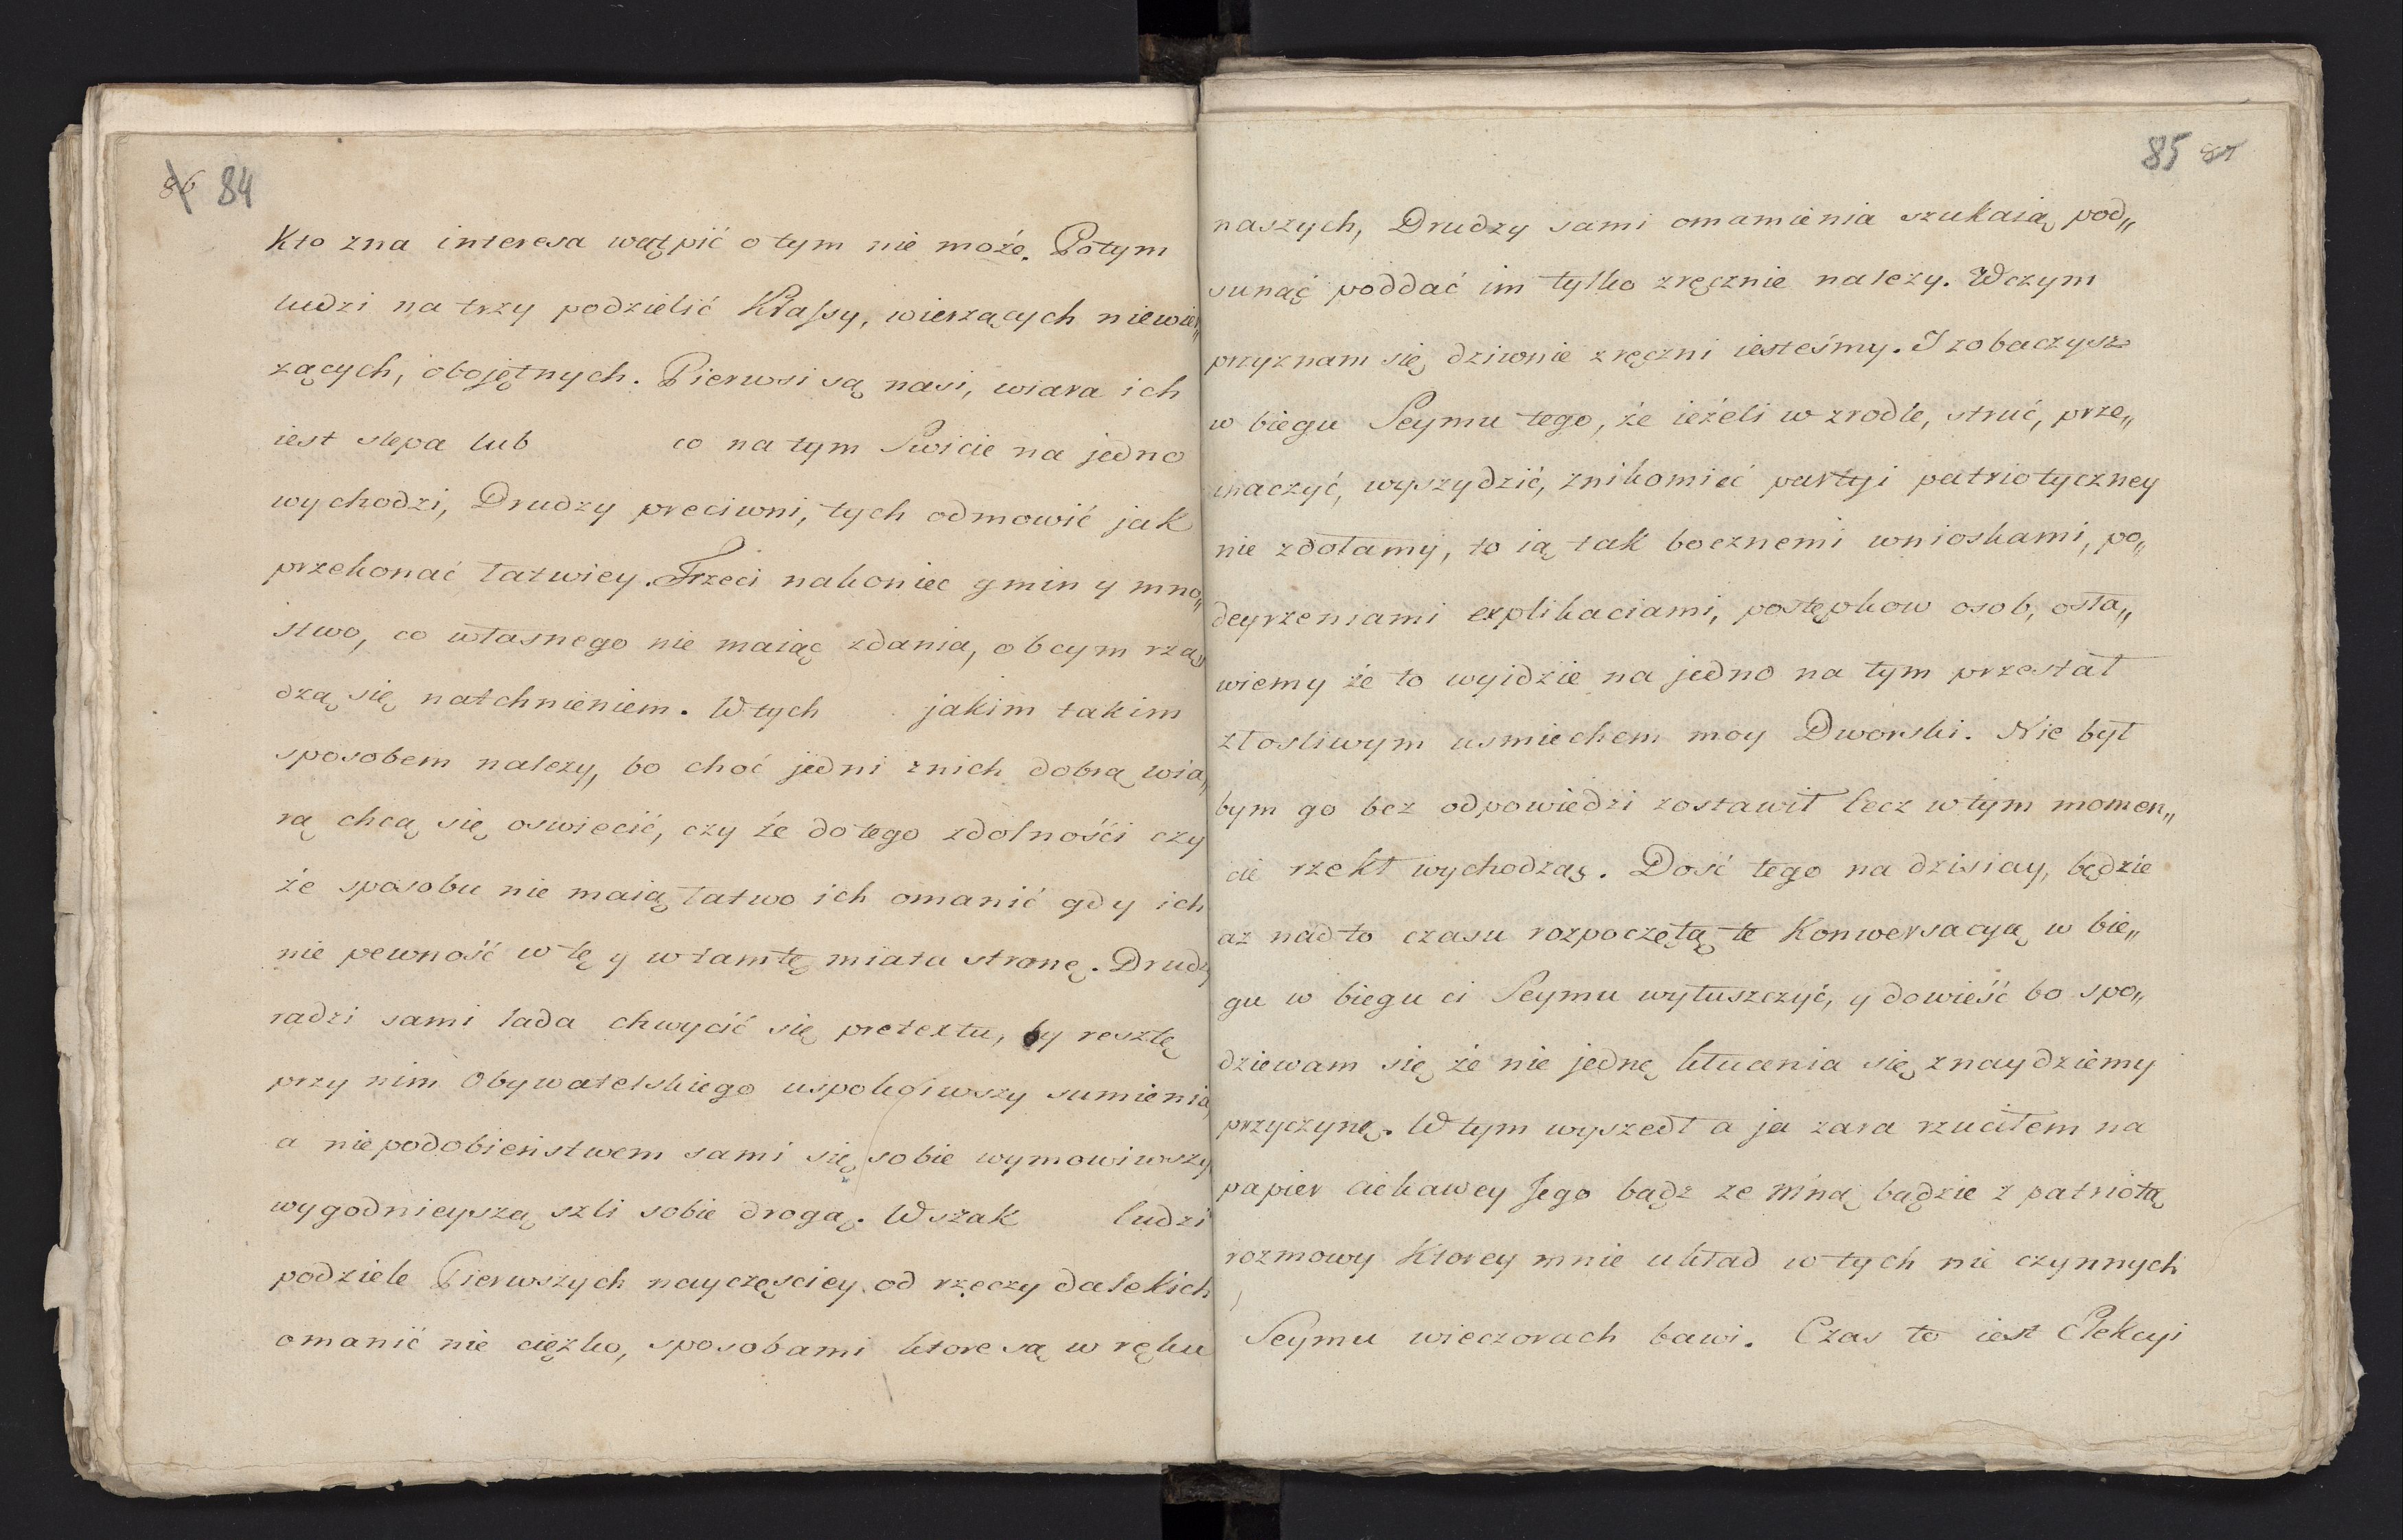 86 84
Kto zna interesa wątpić o tym nie może. Potym
ludzi na trzy podzielić Klassy, wierzących niewier„
zących, obojętnych. Pierwsi są nasi, wiara ich
iest slepa lub co na tym Swicie na jedno
wychodzi, Drudzy preciwni, tych odmowić jak
przekonać łatwiey. Trzeci nakoniec gmin y mno„
stwo, co własnego nie maiąc zdania, obcym rzą„
dzą się natchnieniem. W tych jakim takim
sposobem nalezy, bo choć jedni z nich dobrą wia„
rą chcą się oswiecić, czy że do tego zdolnośći czy
że sposobu nie maią łatwo ich omanić gdy ich
nie pewność w tę y w tamtę miata stronę. Drudzy
radzi sami lada chwycić się pretextu, by resztę
przy nim Obywatelskiego uspokoiwszy sumienia,
a niepodobieństwem sami się sobie wymowiwszy
wygodnieyszą szli sobie drogą. Wszak ludzi
podziele Pierwszych nayczęsciey od rzęczy dalekich
omanić nie cięzko, sposobami ktore są w ręku
85 87
naszych, Drudzy sami omamienia szukaią, pod„
sunąć poddać im tylko zręcznie nalezy. W czym
przyznam się dziwnie zręczni iesteśmy. I zobaczysz
w biegu Seymu tego, że ieżeli w zrodle, struć, prze„
inaczyć, wyszydzić, znikomieć partyi patriotyczney
nie zdołamy, to ią tak bocznemi wnioskami, po„
deyrzeniami explikaciami, postępkow osob, osła„
wiemy że to wyidzie na jedno na tym przestał
złosliwym usmiechem moy Dworski. Nie był
bym go bez odpowiedzi zostawił lecz w tym momen„
cie rzekł wychodząc. Dość tego na dzisiay, będzie
az nadto czasu rozpoczętą te Konwersacyą w bie„
gu w biegu ci Seymu wyłuszczyć, y dowieść bo spo„
dziewam się że nie jednę kłucenia się znaydziemy
przyczynę. W tym wyszedł a ja zara rzuciłem na
papier ciekawey Jego bądz ze mną bądzie z patriotą
rozmowy Ktorey mnie układ w tych nie czynnych
Seymu wieczorach bawi. Czas to iest Elekcyi